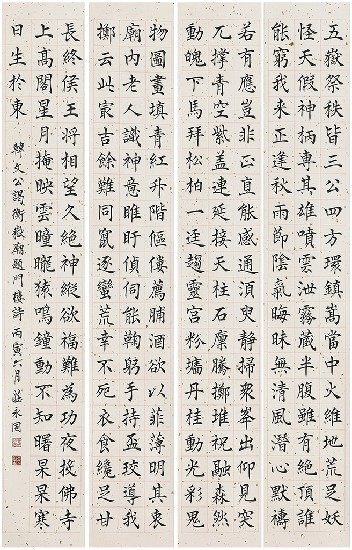 五嶽祭秩皆三公四方環鎮嵩當中火維地荒足妖
怪天假神柄專其雄噴雲泄霧藏半腹雖有絕頂誰
能窮我來正逢秋雨節陰氣晦昧無清風潛心默禱
若有應豈非正直能感通須臾靜掃眾峯出仰見突
兀撐青空紫蓋連延接天柱石廩騰擲堆祝融森然
動魄下馬拜松柏一逕趨靈宮粉墻丹桂動光彩鬼
物圖畫填青紅升階傴僂薦脯酒欲以菲薄明其衷
廟內老人識神意睢盱偵伺能鞠躬手持盃珓導我
擲云此最吉餘難同竄逐蠻荒幸不死衣食纔足甘
長終侯王將相望久絕神縱欲福難為功夜投佛寺
上高閣星月掩映雲曈曨猿鳴鐘動不知曙杲杲寒
日生於東
韓文公謁衡嶽廟題門樓詩丙寅六月